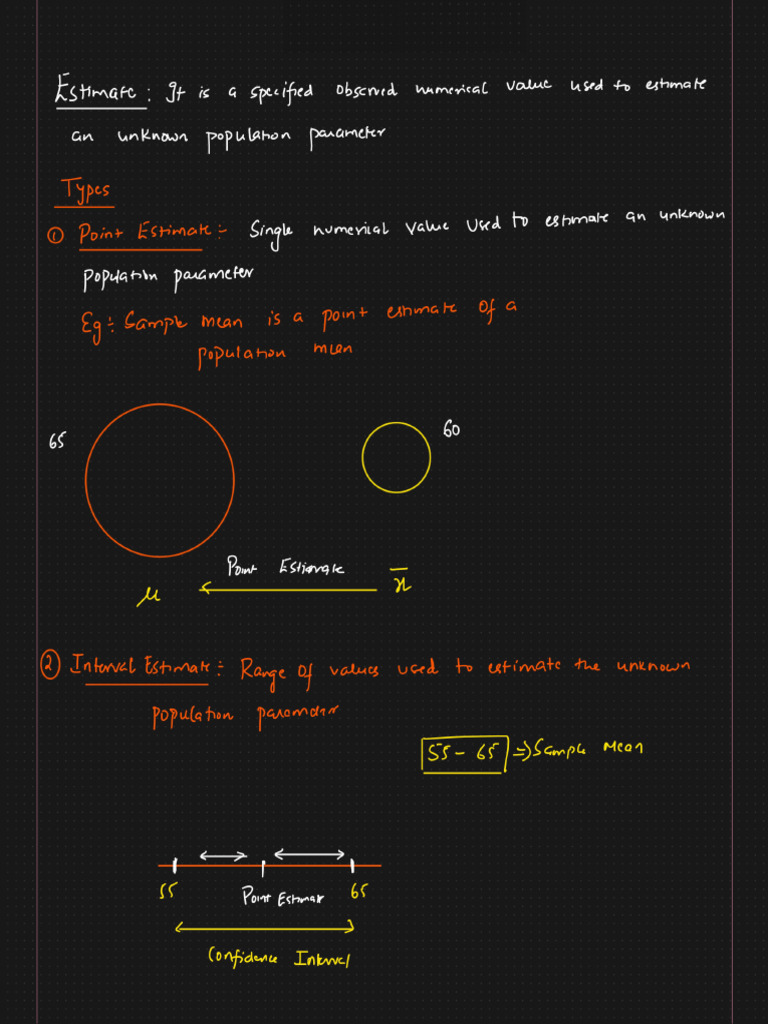 Estimate : It is a specified observed numerical value used to estimate
an unknown population parameter
Types
① Point Estimate :- Single numerical value used to estimate an unknown
population parameter
Eg :- Sample mean is a point estimate of a
population mean
65
60
Point Estimate
μ
x̄
② Interval Estimate :- Range of values used to estimate the unknown
population parameter
55 - 65 ⇒ Sample Mean
55 Point Estimate 65
Confidence Interval